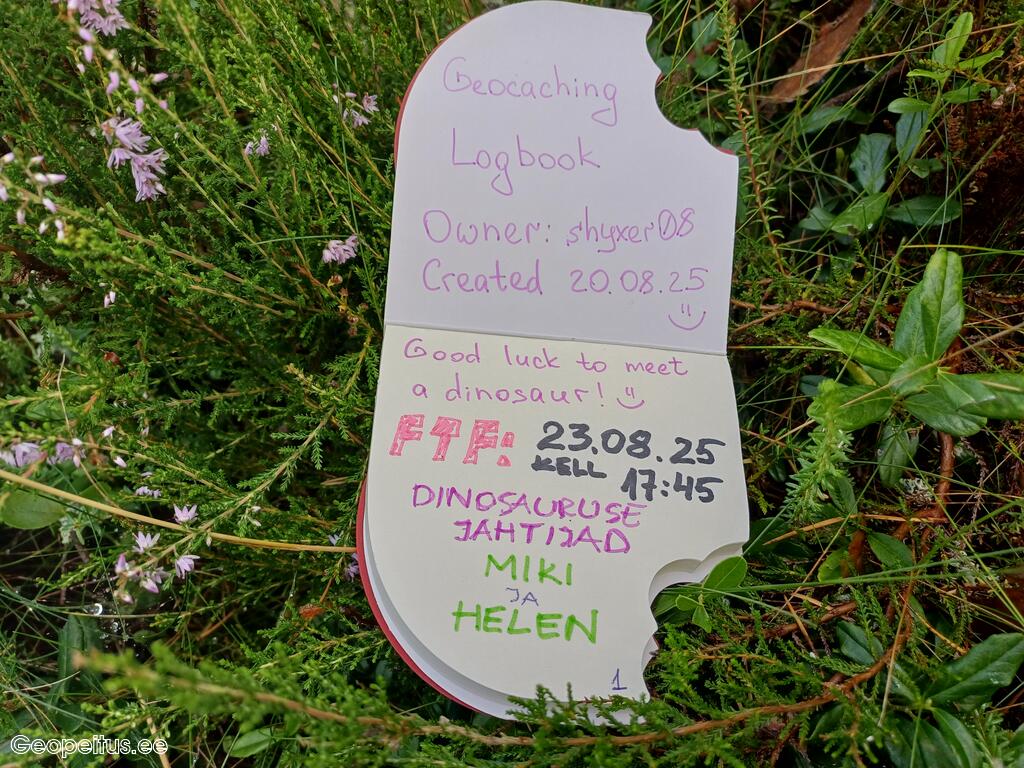 Geocaching
Logbook
Owner: shyxer08
Created 20.08.25
Good luck to meet
a dinosaur!
FTF: 23.08.25
KELL 17:45
DINOSAURUSE
JAHTIJAD
MIKI
JA
HELEN
1
Geopeitus.ee